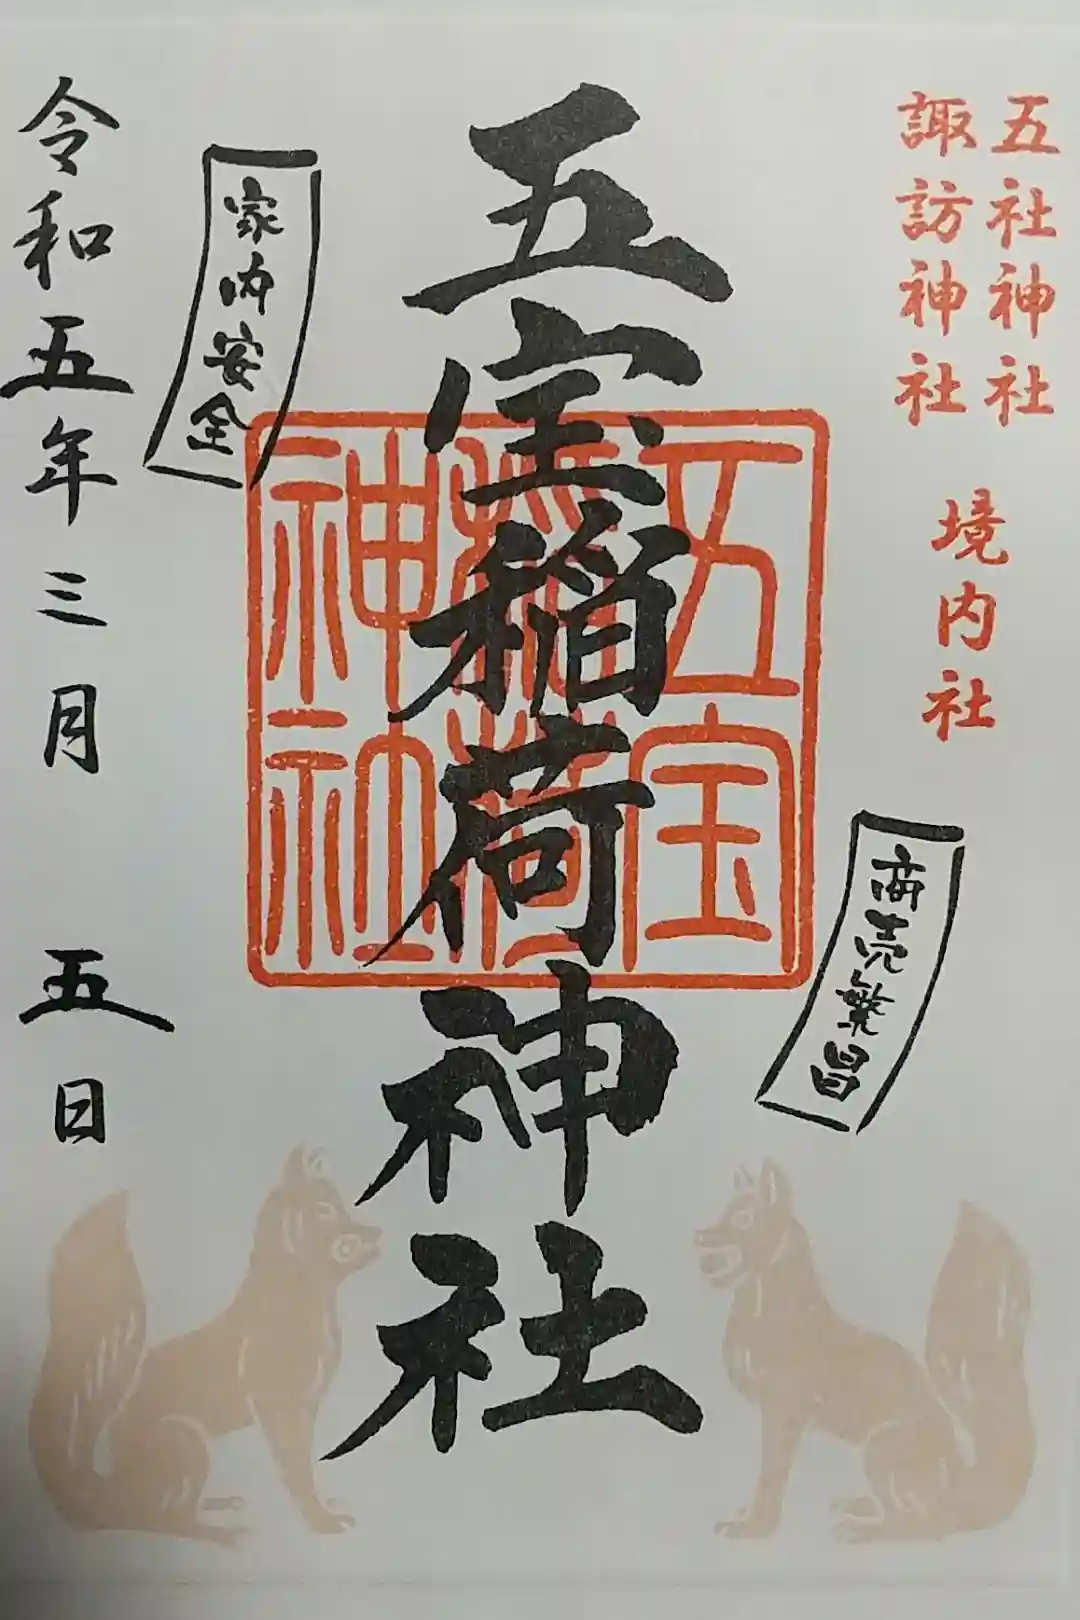 五社神社
諏訪神社
境内社
商売繁昌
五宝稲荷神社
五宝
稲荷
神社
家内安全
令和五年三月 五日